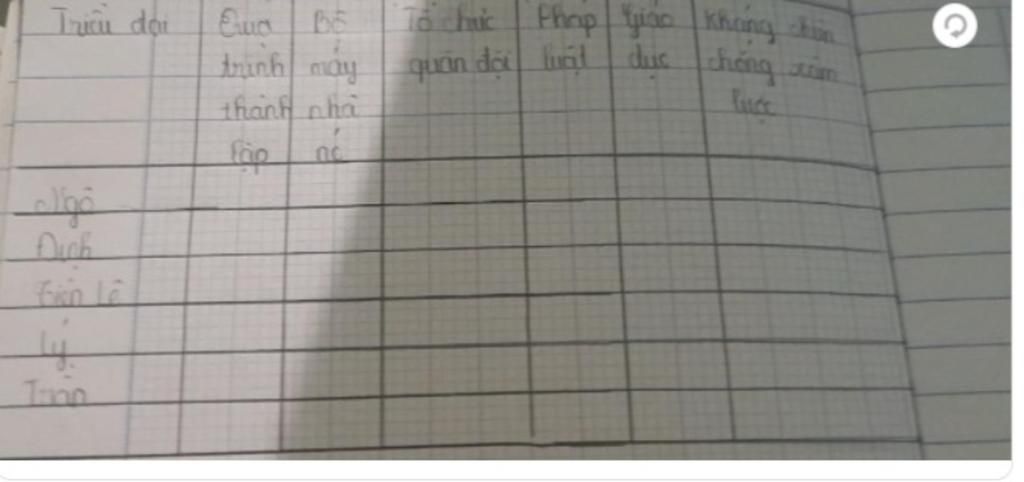 Triều đại
Quá trình thành lập
Bộ máy nhà nc
Tổ chức quân đội
Pháp luật
Giáo dục
Kháng chiến chống xâm lược
Ngô
Đinh
Tiền Lê
Lý
Trần